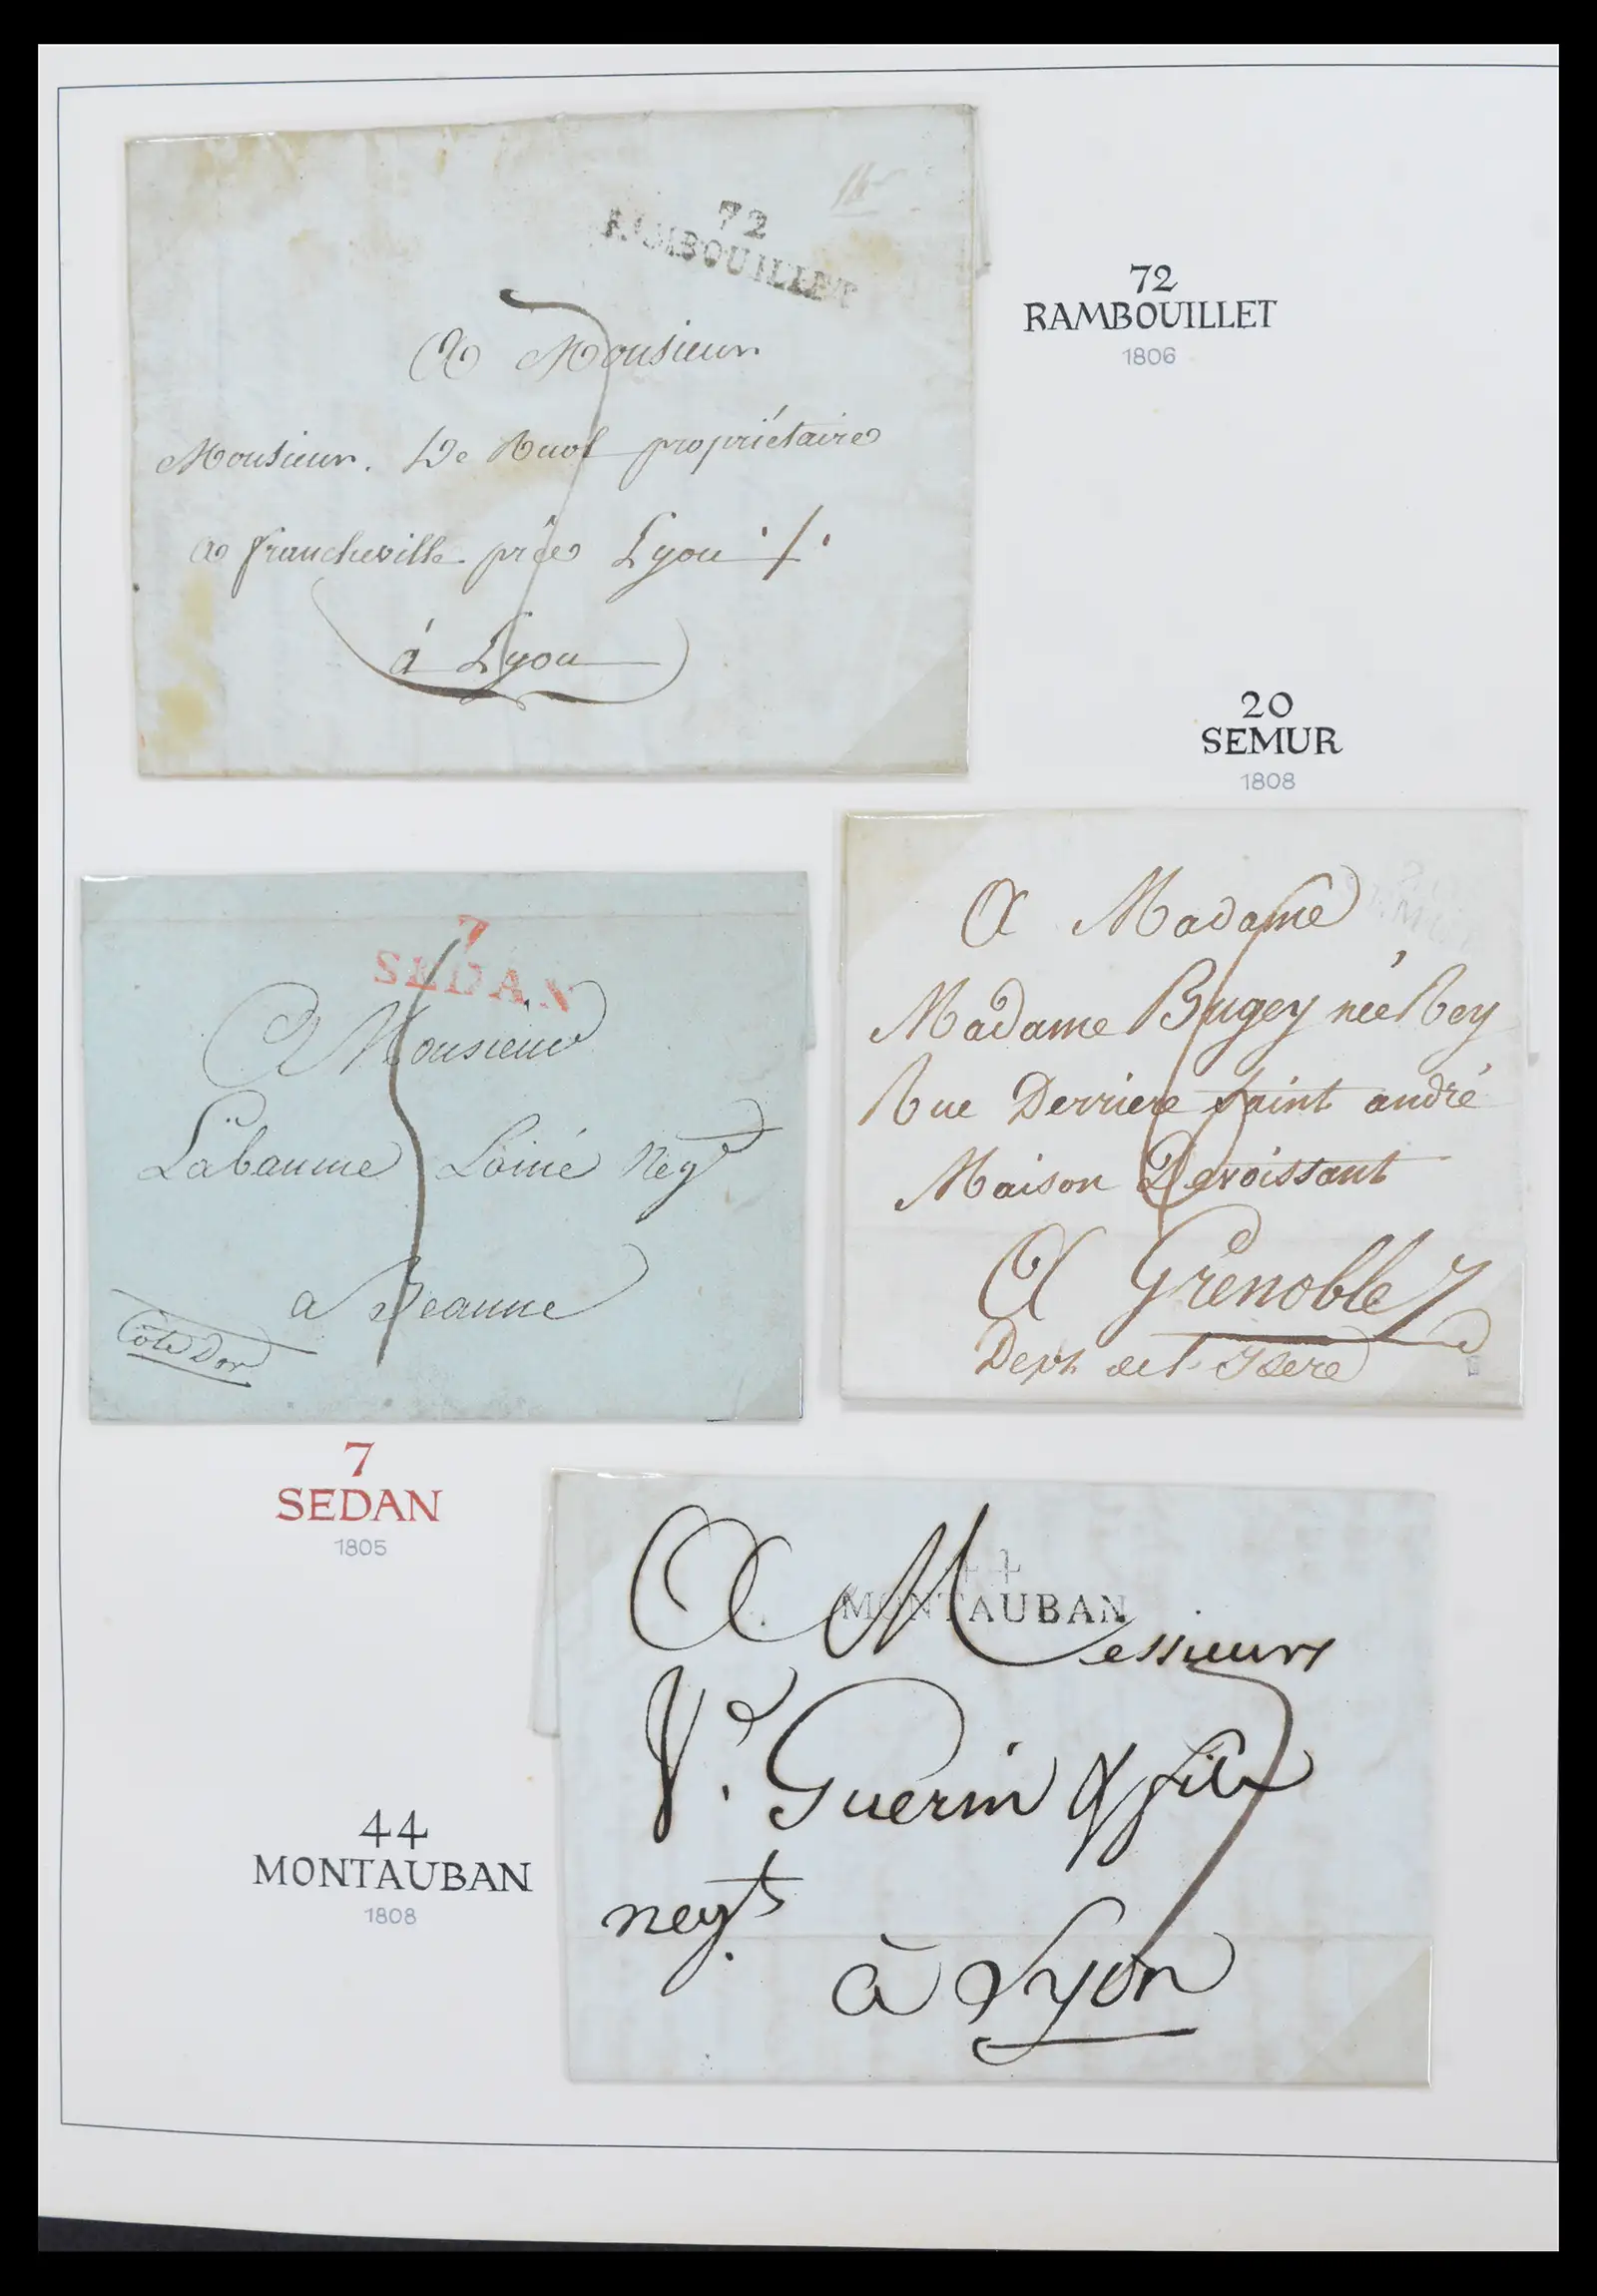 72
RAMBOUILLET
A Monsieur
Monsieur. De Ruol propriétaire
a francheville près Lyon ./.
à Lyon
72
RAMBOUILLET
1806
20
SEMUR
1808
7
SEDAN
A Monsieur
Labaume Loiné Negt
a Beaune
Côte Dor
A Madame
Madame Bugey née Rey
Rue Derriere saint andré
Maison Devoissant
A Grenoble
Dept de l'Isere
7
SEDAN
1805
44
MONTAUBAN
A Messieurs
Ve. Guerin & fils
negts
à Lyon
44
MONTAUBAN
1808